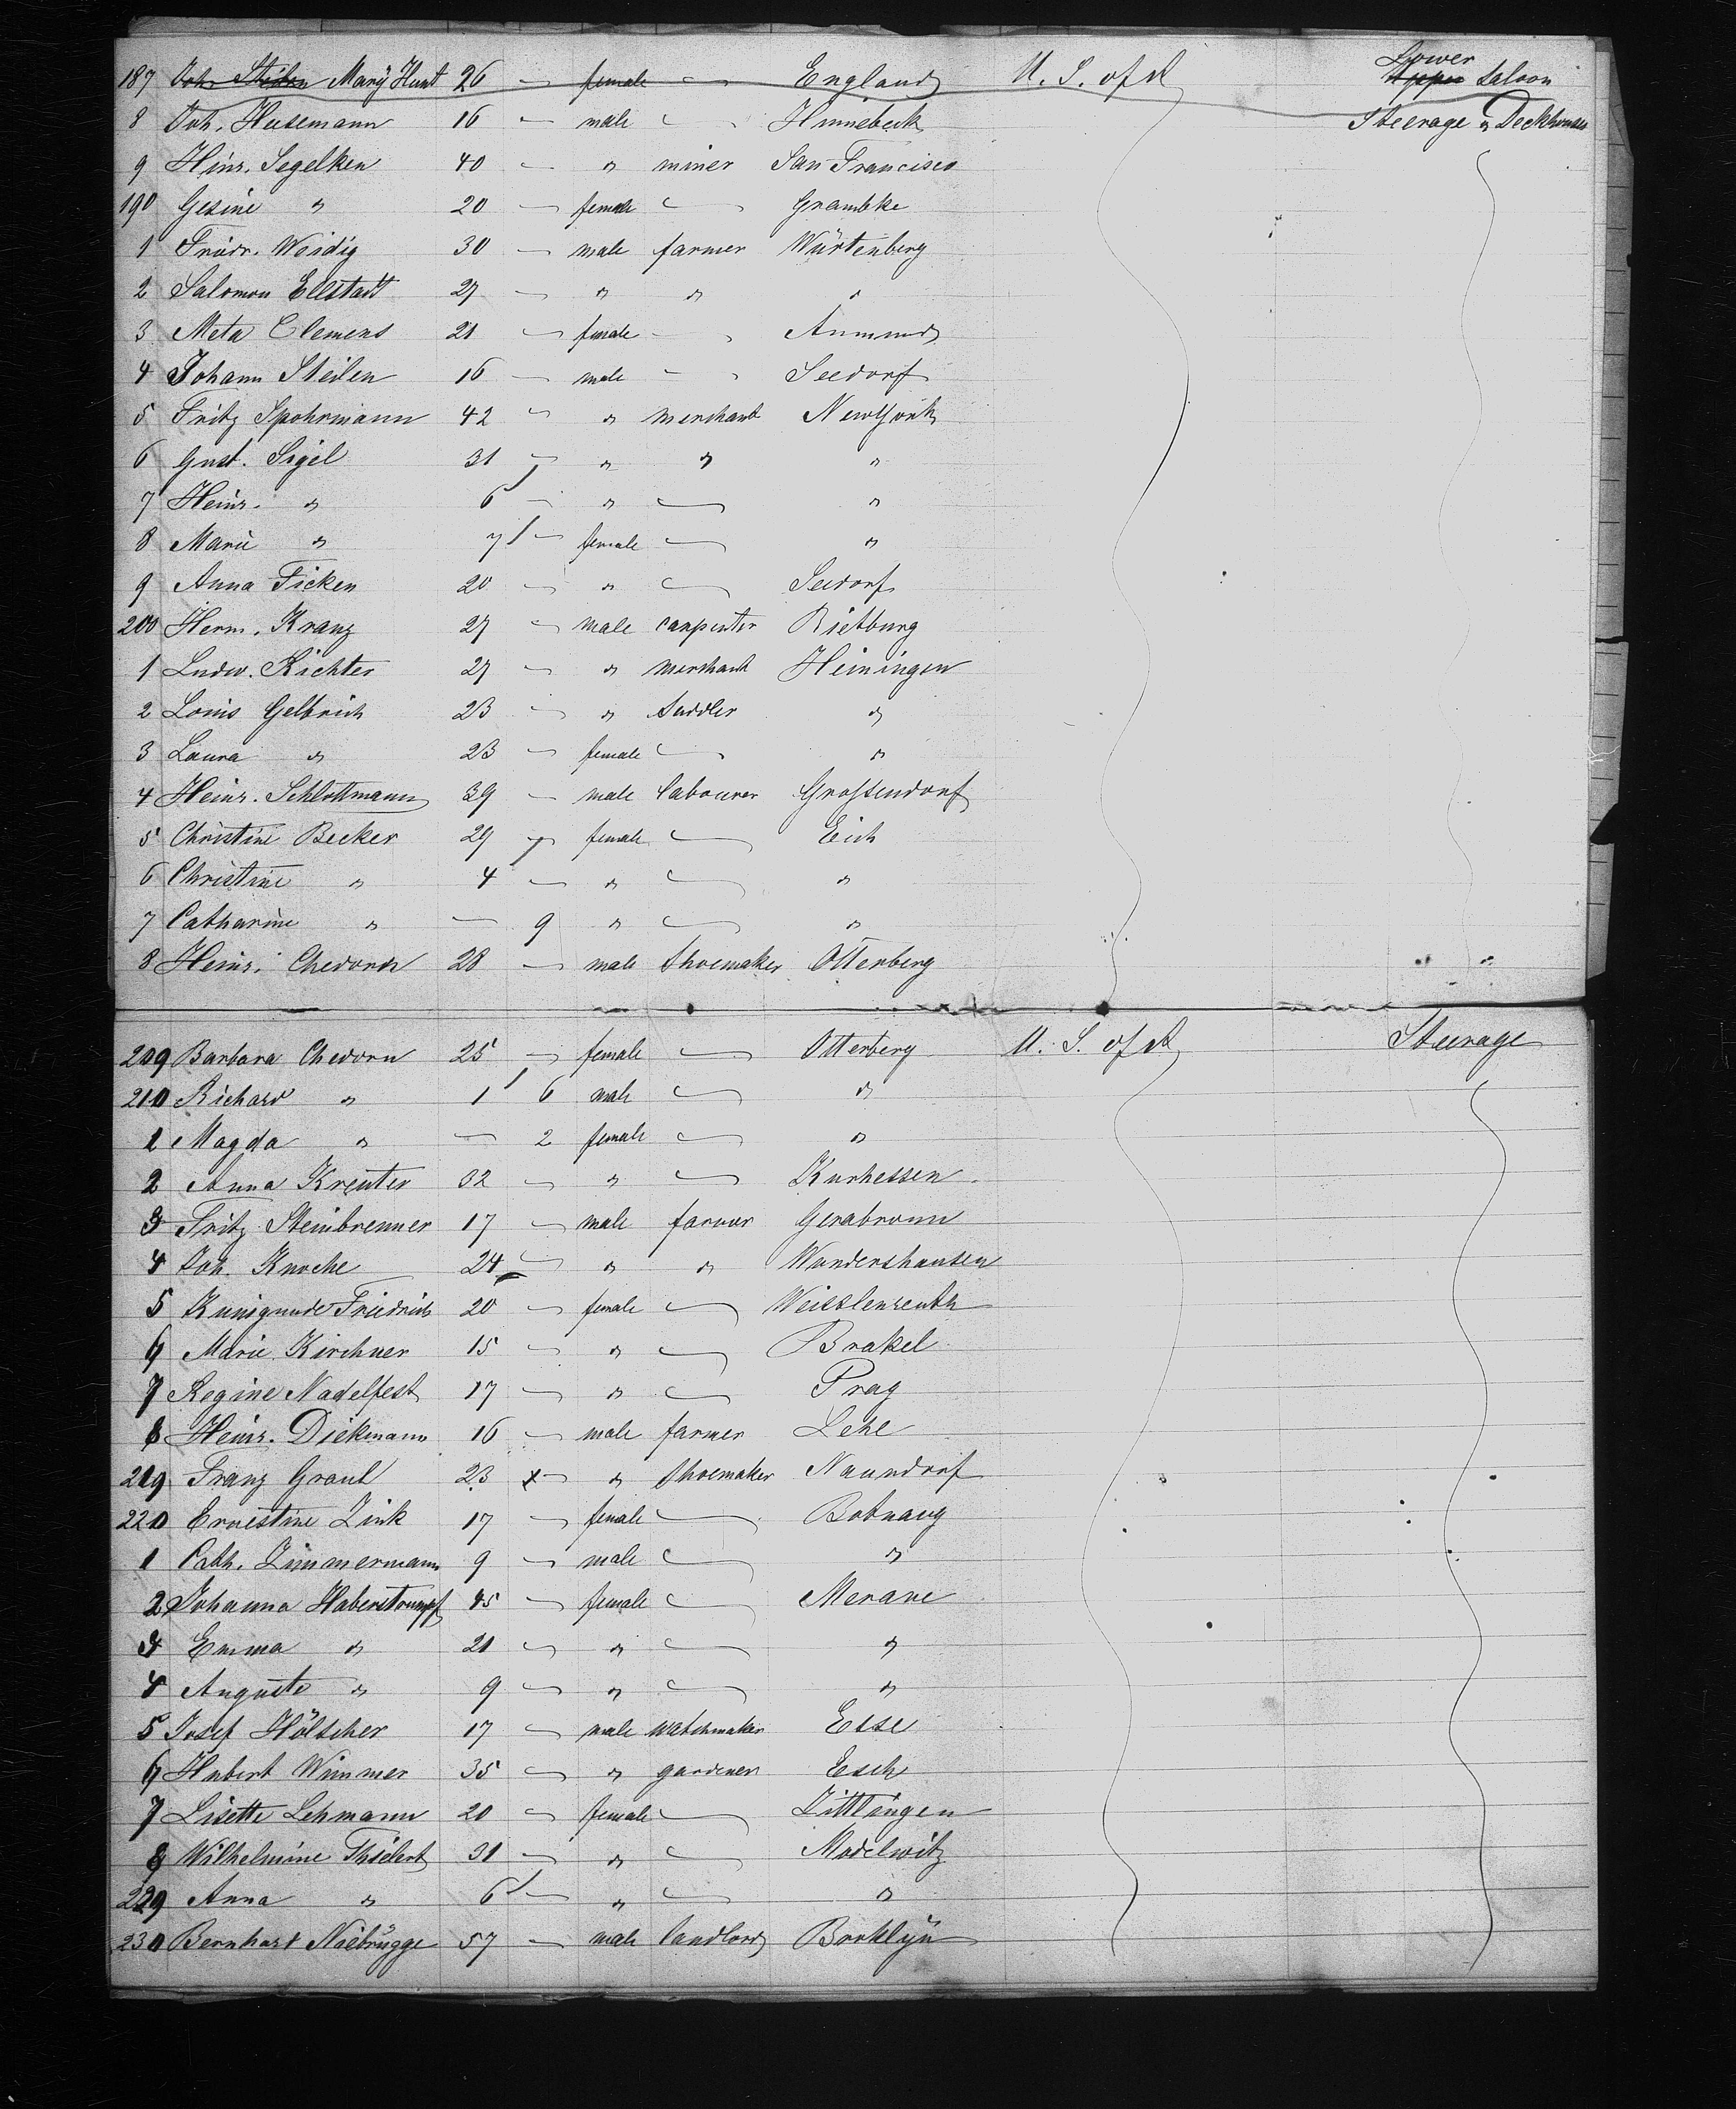 187 Joh. Steilen Mary Hunt 26 — female — England U. S. of A Lower Upper Saloon
8 Joh. Husemann 16 — male — Hinnebeck Steerage & Deckhouses
9 Hinr. Segelken 40 — " miner San Francisco
190 Gesine " 20 — female — Grambke
1 Friedr. Weidig 30 — male farmer Würtenberg
2 Salomon Ellstadt 27 — " " "
3 Meta Clemens 21 — female — Aumund
4 Johann Steilen 16 — male — Seedorf
5 Fritz Spohrmann 42 — " merchant New York
6 Gust. Sigel 31 — " " "
7 Heinr. " 6 — " — "
8 Marie " 7 — female — "
9 Anna Ficken 20 — " — Seedorf
200 Herm. Kranz 27 — male carpenter Rietburg
1 Ludw. Richter 27 — " merchant Heiningen
2 Louis Gelbrich 23 — " Saddler "
3 Laura " 23 — female — "
4 Heinr. Schlottmann 39 — male labourer Grossendorf
5 Christine Becker 29 — female — Eich
6 Christine " 4 — " — "
7 Catharine " — 9 " — "
8 Heinr. Chevorn 28 — male Shoemaker Otterberg
209 Barbara Chevorn 25 — female — Otterberg U. S. of A Steerage
210 Richard " 1 6 male — "
1 Magda " — 2 female — "
2 Anna Kreuter 32 — " — Kurhessen
3 Fritz Steinbrenner 17 — male farmer Gerabronn
4 Joh. Knoche 24 — " " Wundershausen
5 Kunigunde Friedrich 20 — female — Weisslenreuth
6 Marie Kirchner 15 — " — Brakel
7 Regine Nadelfest 17 — " — Prag
8 Heinr. Diekmann 16 — male farmer Lehe
219 Franz Graul 23 x — " Shoemaker Naundorf
220 Ernestine Zink 17 — female — Botnang
1 Cath. Zimmermann 9 — male — "
2 Johanna Haberstrumpf 45 — female — Merane
3 Emma " 21 — " — "
4 Auguste " 9 — " — "
5 Josef Hölscher 17 — male watchmaker Esse
6 Hubert Wimmer 35 — " gardener Esch
7 Lisette Lehmann 20 — female — Zittlingen
8 Wilhelmine Thielert 31 — " — Modelwitz
229 Anna " 6 — " — "
230 Bernhart Niebrügge 57 — male landlord Brooklyn